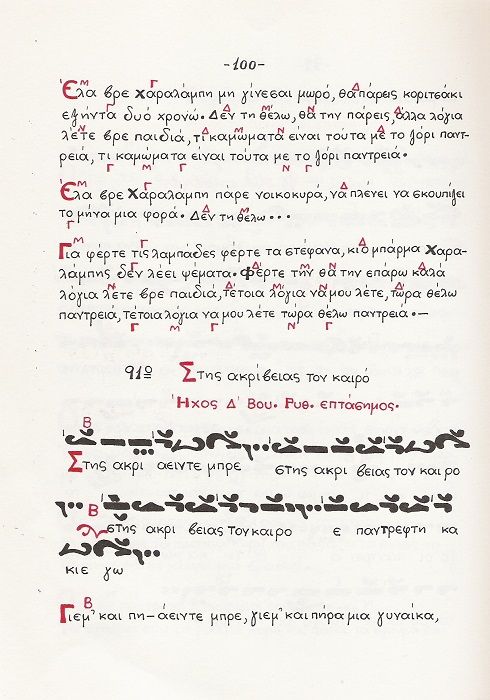 -100-
Έλα βρε Χαραλάμπη μη γίνεσαι μωρό, θα πάρεις κοριτσάκι
εξήντα δυό χρονώ. Δεν τη θέλω, θα την πάρεις, άλλα λόγια
λέτε βρε παιδιά, τι καμώματα είναι τούτα με το ζόρι παντ-
ρειά, τι καμώματα είναι τούτα με το ζόρι παντρειά.
Έλα βρε Χαραλάμπη πάρε νοικοκυρά, να πλένει να σκουπίζει
το μήνα μια φορά. Δεν τη θέλω...
Για φέρτε τις λαμπάδες φέρτε τα στέφανα, κι ο μπάρμα Χαρα-
λάμπης δεν λέει ψέματα. Φέρτε την θα την επάρω καλά
λόγια λέτε βρε παιδιά, τέτοια λόγια να μου λέτε, τώρα θέλω
παντρειά, τέτοια λόγια να μου λέτε τώρα θέλω παντρειά.—
91ο Στης ακρίβειας τον καιρό
Ήχος Δ΄ Βου. Ρυθ. επτάσημος.
Στης ακρι αειντε μπρε στης ακρι βειας τον και ρο
στης ακρι βειας τον καιρο ε παντρεφτη κα
κιε γω
Γιεμ' και πη-άειντε μπρε, γιεμ' και πήρα μια γυναίκα,